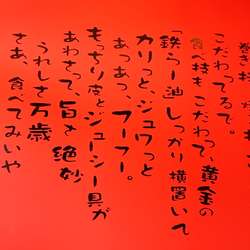 巻き
こだわってるで。
食べ技もこだわって、黄金の
「鉄らー油しっかり横置いて
カリっと、ジュワっと
あつあつ、フーフー。
もっちり皮とジューシー具が
あわさって、旨さ絶妙
うれしさ万歳
さあ、食べてみいや